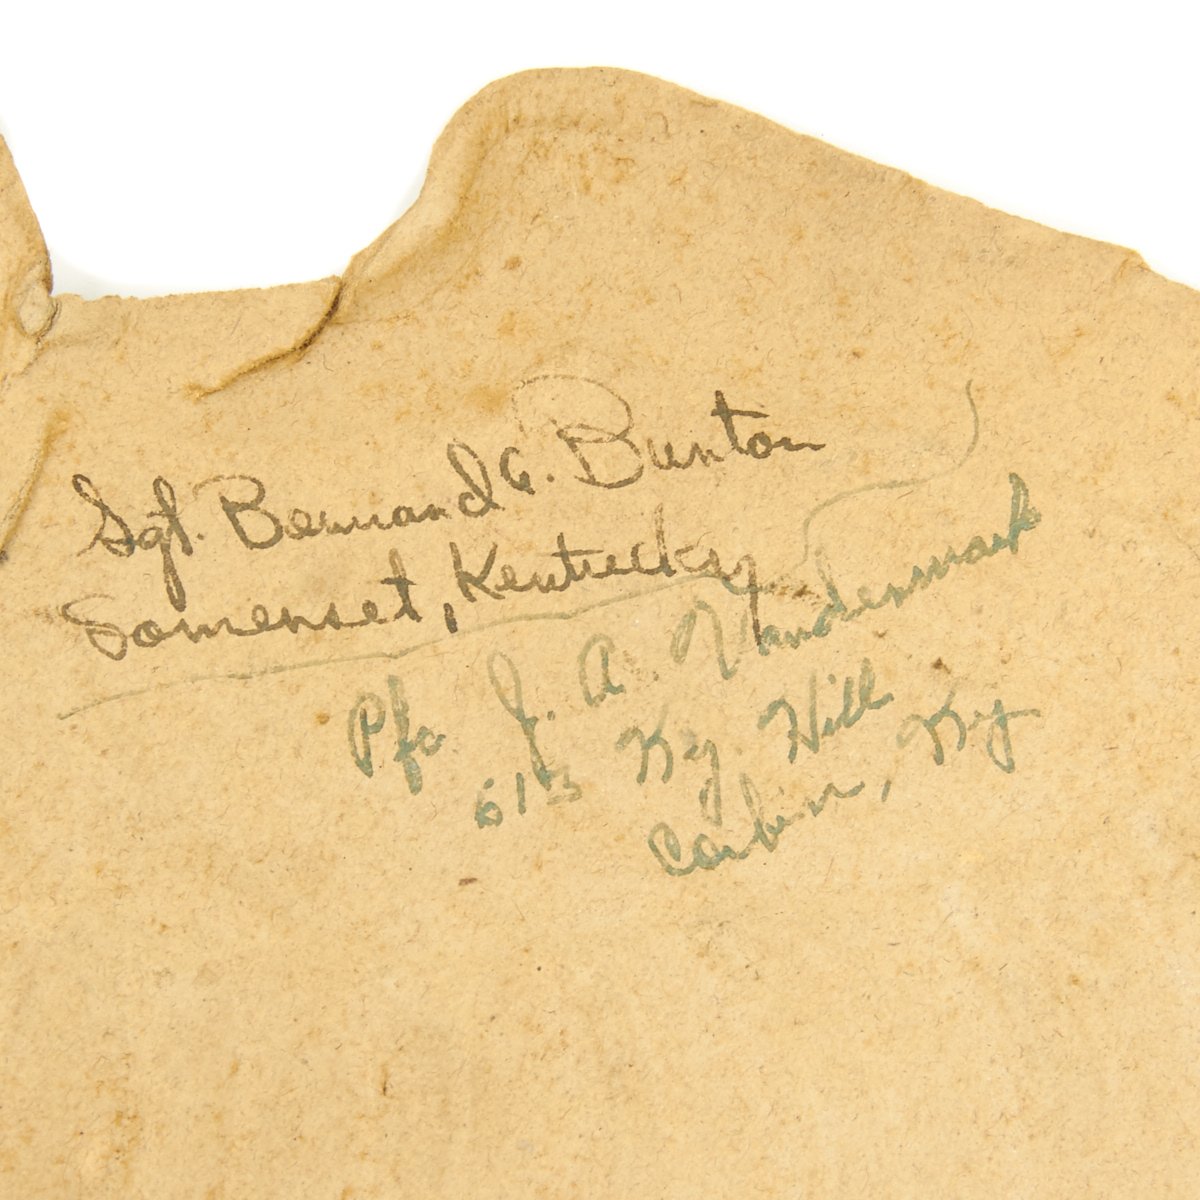 Sgt. Bernard C. Bunton
Somerset, Kentucky
Pfc J. A. Vandermark
613 Ky Hill
Corbin, Ky